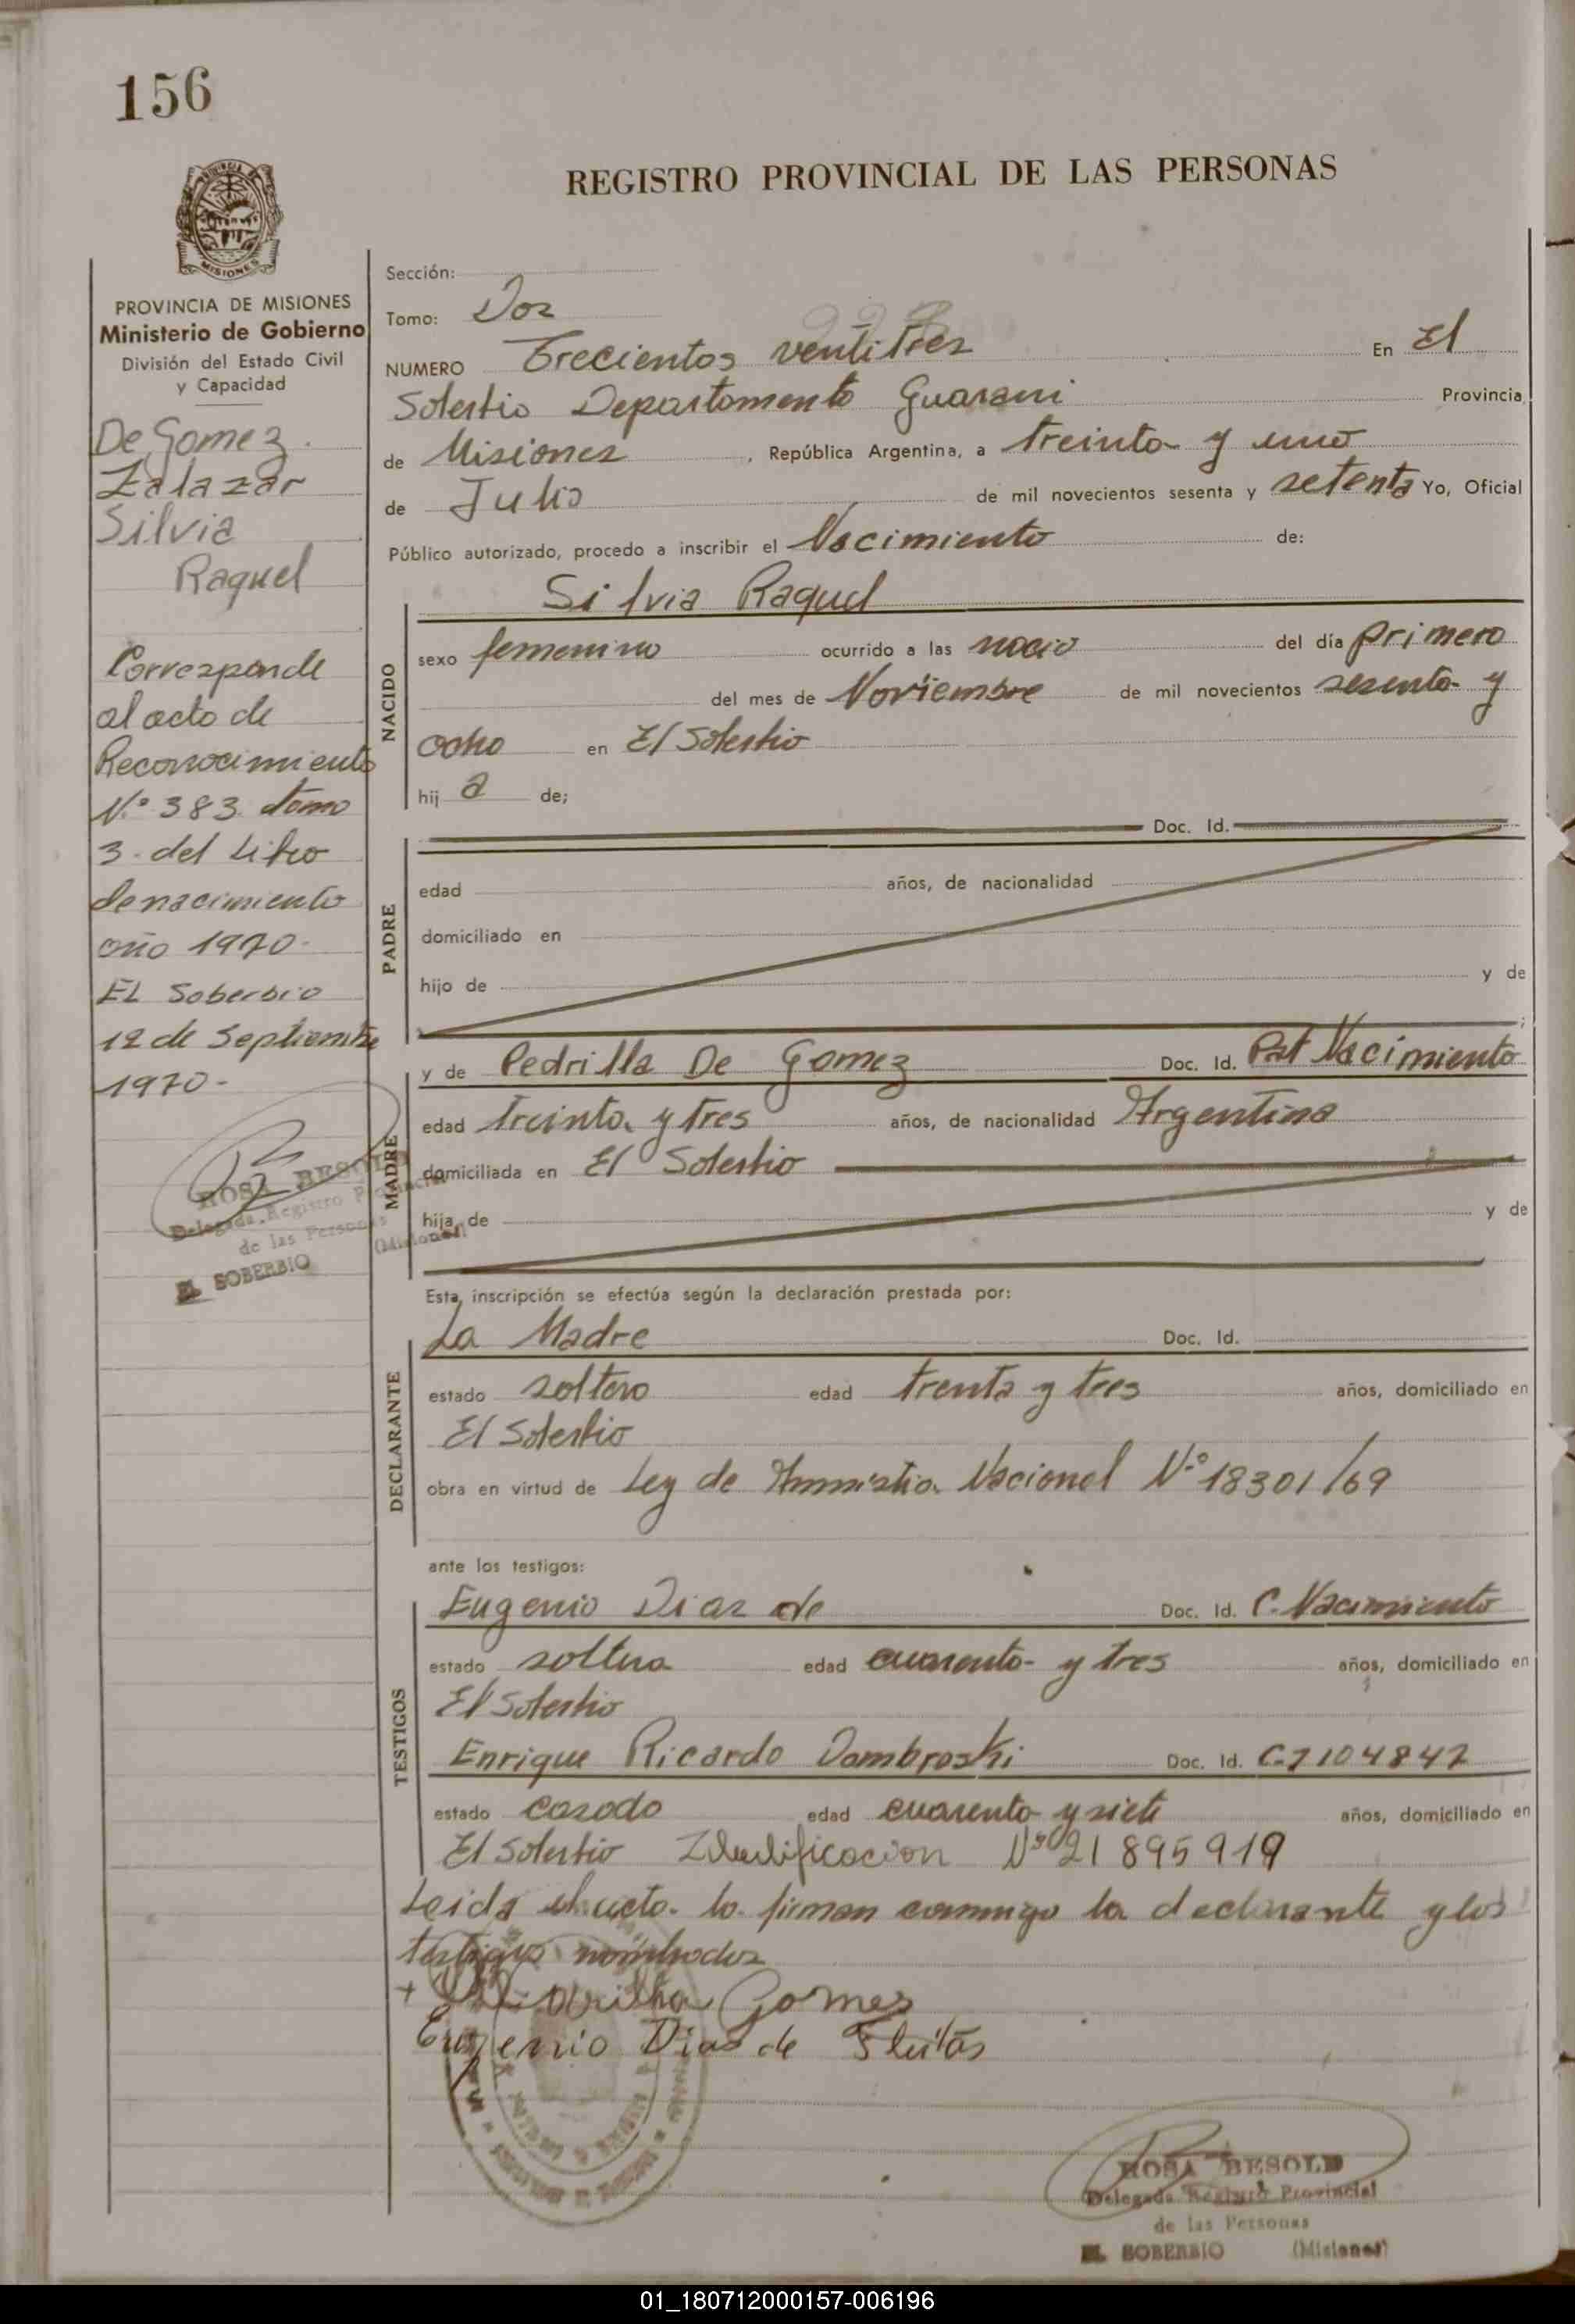 156
REGISTRO PROVINCIAL DE LAS PERSONAS
MISIONES
PROVINCIA DE MISIONES
Ministerio de Gobierno
División del Estado Civil
y Capacidad
De Gomez
Zalazar
Silvia
Raquel
Corresponde
al acto de
Reconocimiento
N.º 383 tomo
3 del Libro
de nacimiento
año 1970.
EL Soberbio
12 de Septiembre
1970-
ROSA BESOLD
Delegada Registro Provincial
de las Personas
(Misiones)
EL SOBERBIO
Sección:
Tomo: Dos
NUMERO Trecientos ventitres En El
Soberbio Departamento Guarani Provincia
de Misiones, República Argentina, a treinta y uno
de Julio de mil novecientos sesenta y setenta Yo, Oficial
Público autorizado, procedo a inscribir el Nacimiento de:
Silvia Raquel
NACIDO
sexo femenino ocurrido a las del día primero
del mes de Noviembre de mil novecientos sesenta y
ocho en El Soberbio
hij a de;
PADRE
Doc. Id.
edad años, de nacionalidad
domiciliado en
hijo de y de
MADRE
y de Pedrilla De Gomez Doc. Id. Nacimiento
edad treinta y tres años, de nacionalidad Argentina
domiciliada en El Soberbio
hija de y de
Esta inscripción se efectúa según la declaración prestada por:
DECLARANTE
La Madre Doc. Id.
estado soltera edad trenta y tres años, domiciliado en
El Soberbio
obra en virtud de Ley de Ammistia Nacional Nº 18301/69
ante los testigos:
TESTIGOS
Eugenio Diaz de Doc. Id. C. Nacimiento
estado soltero edad cuarenta y tres años, domiciliado en
El Soberbio
Enrique Ricardo Dombroski Doc. Id. C-7104847
estado casado edad cuarenta y siete años, domiciliado en
El Soberbio Idedificacion Nº 21895919
Leida el acta lo firman conmigo la declarante y los
testigos nombrados
+ Gomes
Eugenio Dias de Fleitas
ROSA BESOLD
Delegada Registro Provincial
de las Personas
EL SOBERBIO (Misiones)
01_180712000157-006196